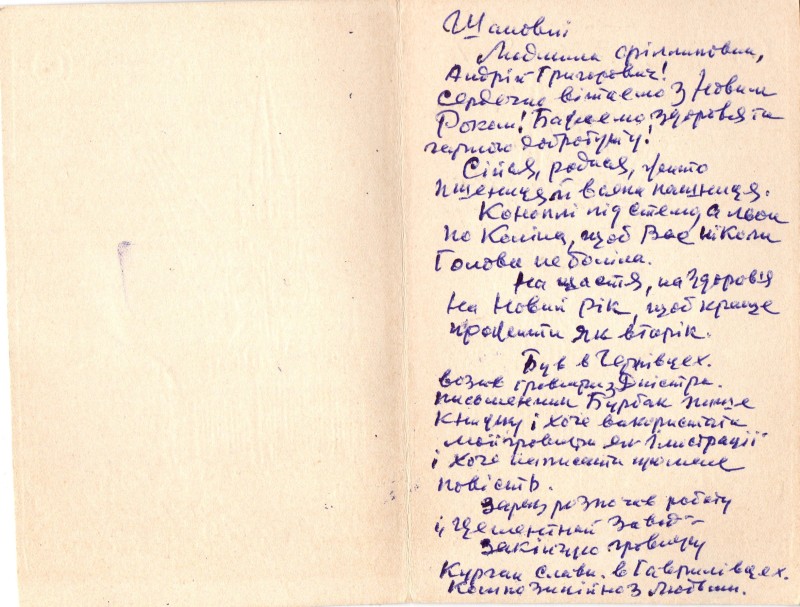 Шановні
Людмила
Андрій Григорович!
Сердечно вітаємо з Новим
Роком! Бажаємо здоровя та
гарного добробуту!
Сійся, родися, жито
пшениця й всяка пашниця.
Коноплі під стелю а льон
по коліна, щоб Вас ніколи
Голова не боліла.
На щастя, на здоровія
На Новий рік, щоб краще
прожити як вторік.
Був в Чернівцех.
возив гравюри з Дністра.
письменник Бурбак пише
книжку і хоче використати
мої гравюри як ілюстрації
і хоче написати про мене
повість.
Зараз розпочав роботу
Цементний завод
Закінчую гравюру
Курган слави. в Гаврилівцех.
Композиційно з Людьми.